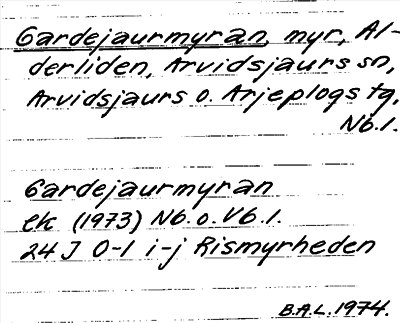 Gardejaurmyran, myr, Al-
derliden, Arvidsjaurs sn,
Arvidsjaurs o. Arjeplogs tg,
Nb.l.
Gardejaurmyran
ek (1973) Nb. o. Vb. l.
24 J 0-1 i-j Rismyrheden
B.A.L. 1974.